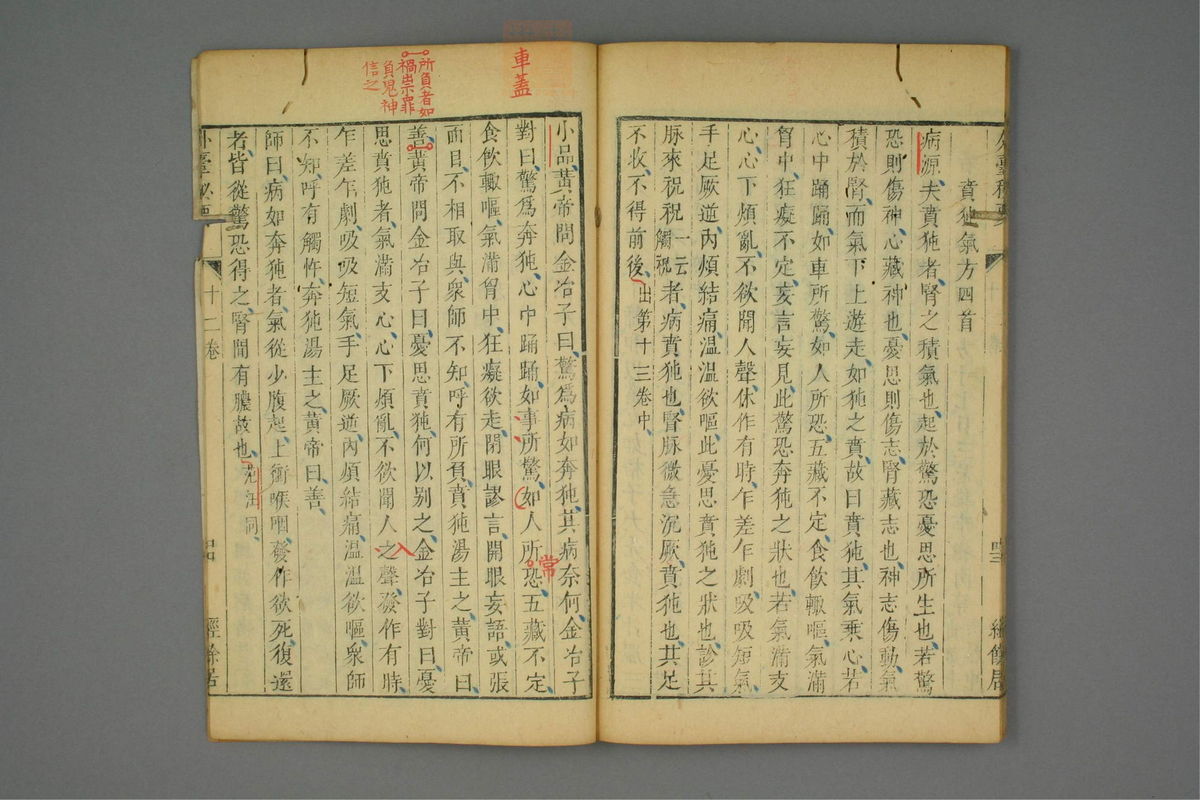 賁㹠氣方四首
病源夫賁㹠者腎之積氣也起於驚恐憂思所生也若驚
恐則傷神心藏神也憂思則傷志腎藏志也神志傷動氣
積於腎而氣下上遊走如㹠之賁故曰賁㹠其氣乘心若
心中踊踊如車所驚如人所恐五藏不定食飲輒嘔氣滿
胷中狂癡不定妄言妄見此驚恐奔㹠之狀也若氣滿支
心心下煩亂不欲聞人聲休作有時乍差乍劇吸吸短氣
手足厥逆內煩結痛溫溫欲嘔此憂思賁㹠之狀也診其
脉來祝祝一云觸祝者病賁㹠也腎脉微急沉厥賁㹠也其足
不收不得前後出第十三卷中
車蓋
小品黃帝問金冶子曰驚爲病如奔㹠其病奈何金冶子
對曰驚爲奔㹠心中踊踊如事所驚如人所恐五藏不定
常
食飲輒嘔氣滿胷中狂癡欲走閉眼謬言開眼妄語或張
面目不相取與衆師不知呼有所負賁㹠湯主之黃帝曰
所負者如
禍祟罪
負鬼神
信之
善黃帝問金冶子曰憂思賁㹠何以別之金冶子對曰憂
思賁㹠者氣滿支心心下煩亂不欲聞人之聲發作有時
乍差乍劇吸吸短氣手足厥逆內煩結痛溫溫欲嘔衆師
不知呼有觸忤奔㹠湯主之黃帝曰善
師曰病如奔㹠者氣從少腹起上衝喉咽發作欲死復還
者皆從驚恐得之腎間有膿故也范汪同
十二卷
經餘居